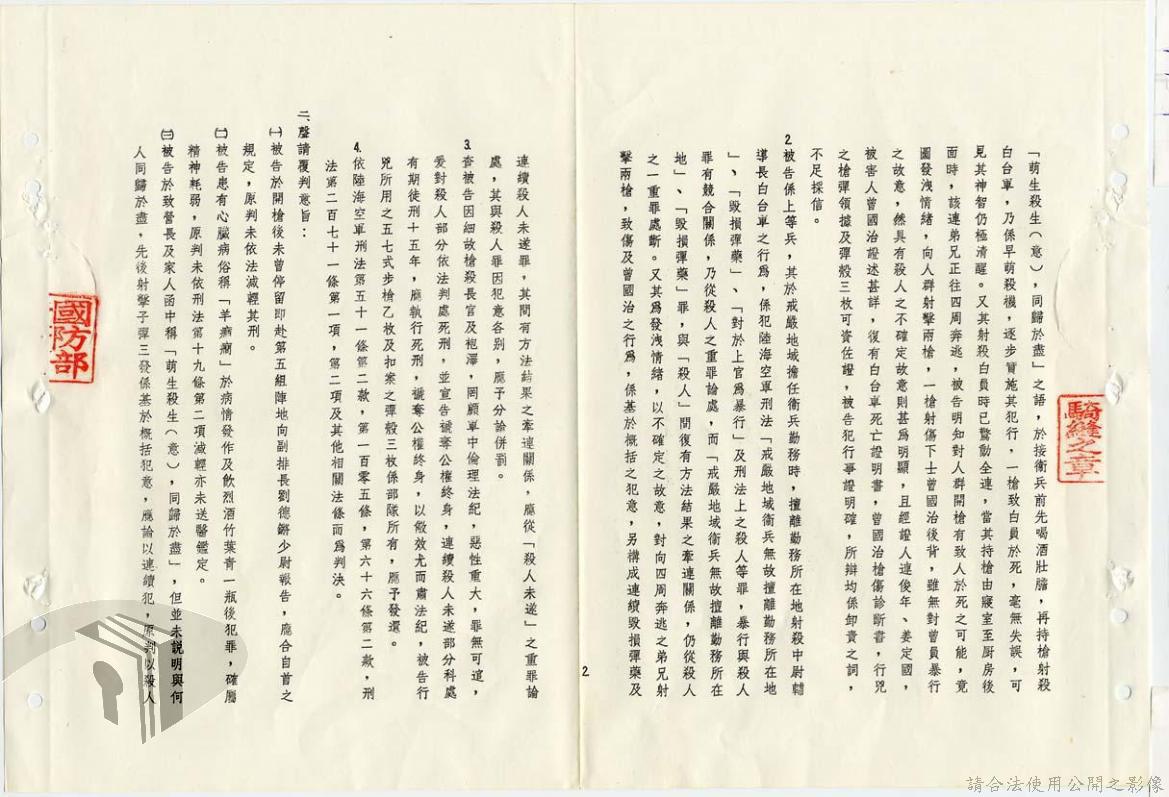 「萌生殺生(意),同歸於盡」之語,於接衛兵前先喝酒壯膽,再持槍射殺
白台車,乃係早萌殺機,逐步實施其犯行,一槍致白員於死,毫無失誤,可
見其神智仍極清醒。又其射殺白員時已驚動全連,當其持槍由寢室至厨房後
面時,該連弟兄正往四周奔逃,被告明知對人群開槍有致人於死之可能,竟
圖發洩情緒,向人群射擊兩槍,一槍射傷下士曾國治後背,雖無對曾員暴行
之故意,然具有殺人之不確定故意則甚為明顯,且經證人連俊年、姜定國,
被害人曾國治證述甚詳,復有白台車死亡證明書,曾國治槍傷診斷書,行兇
之槍彈領據及彈殼三枚可資佐證,被告犯行事證明確,所辯均係卸責之詞,
不足採信。
2.被告係上等兵,其於戒嚴地域擔任衛兵勤務時,擅離勤務所在地射殺中尉輔
導長白台車之行為,係犯陸海空軍刑法「戒嚴地域衛兵無故擅離勤務所在地
」、「毀損彈藥」、「對於上官為暴行」及刑法上之殺人等罪,暴行與殺人
罪有競合關係,乃從殺人之重罪論處,而「戒嚴地域衛兵無故擅離勤務所在
地」、「毀損彈藥」罪,與「殺人」間復有方法結果之牽連關係,仍從殺人
之一重罪處斷。又其為發洩情緒,以不確定之故意,對向四周奔逃之弟兄射
擊兩槍,致傷及曾國治之行為,係基於概括之犯意,另構成連續毀損彈藥及
2
連續殺人未遂罪,其間有方法結果之牽連關係,應從「殺人未遂」之重罪論
處,其與殺人罪因犯意各別,應予分論併罰。
3.查被告因細故槍殺長官及袍澤,罔顧軍中倫理法紀,惡性重大,罪無可逭,
爰對殺人部分依法判處死刑,並宣告褫奪公權終身,連續殺人未遂部分科處
有期徒刑十五年,應執行死刑,褫奪公權終身,以儆效尤而肅法紀,被告行
兇所用之五七式步槍乙枚及扣案之彈殼三枚係部隊所有,應予發還。
4.依陸海空軍刑法第五十一條第二款,第一百零五條,第六十六條第二款,刑
法第二百七十一條第一項,第二項及其他相關法條而為判決。
二、聲請覆判意旨:
㈠被告於開槍後未曾停留即赴第五組陣地向副排長劉德鏘少尉報告,應合自首之
規定,原判未依法減輕其刑。
㈡被告患有心臟病俗稱「羊癲癇」於病情發作及飲烈酒竹葉青一瓶後犯罪,確屬
精神耗弱,原判未依刑法第十九條第二項減輕亦未送醫鑑定。
㈢被告於致營長及家人函中稱「萌生殺生(意),同歸於盡」,但並未說明與何
人同歸於盡,先後射擊子彈三發係基於概括犯意,應論以連續犯,原判以殺人
騎縫之章
國防部
請合法使用公開之影像